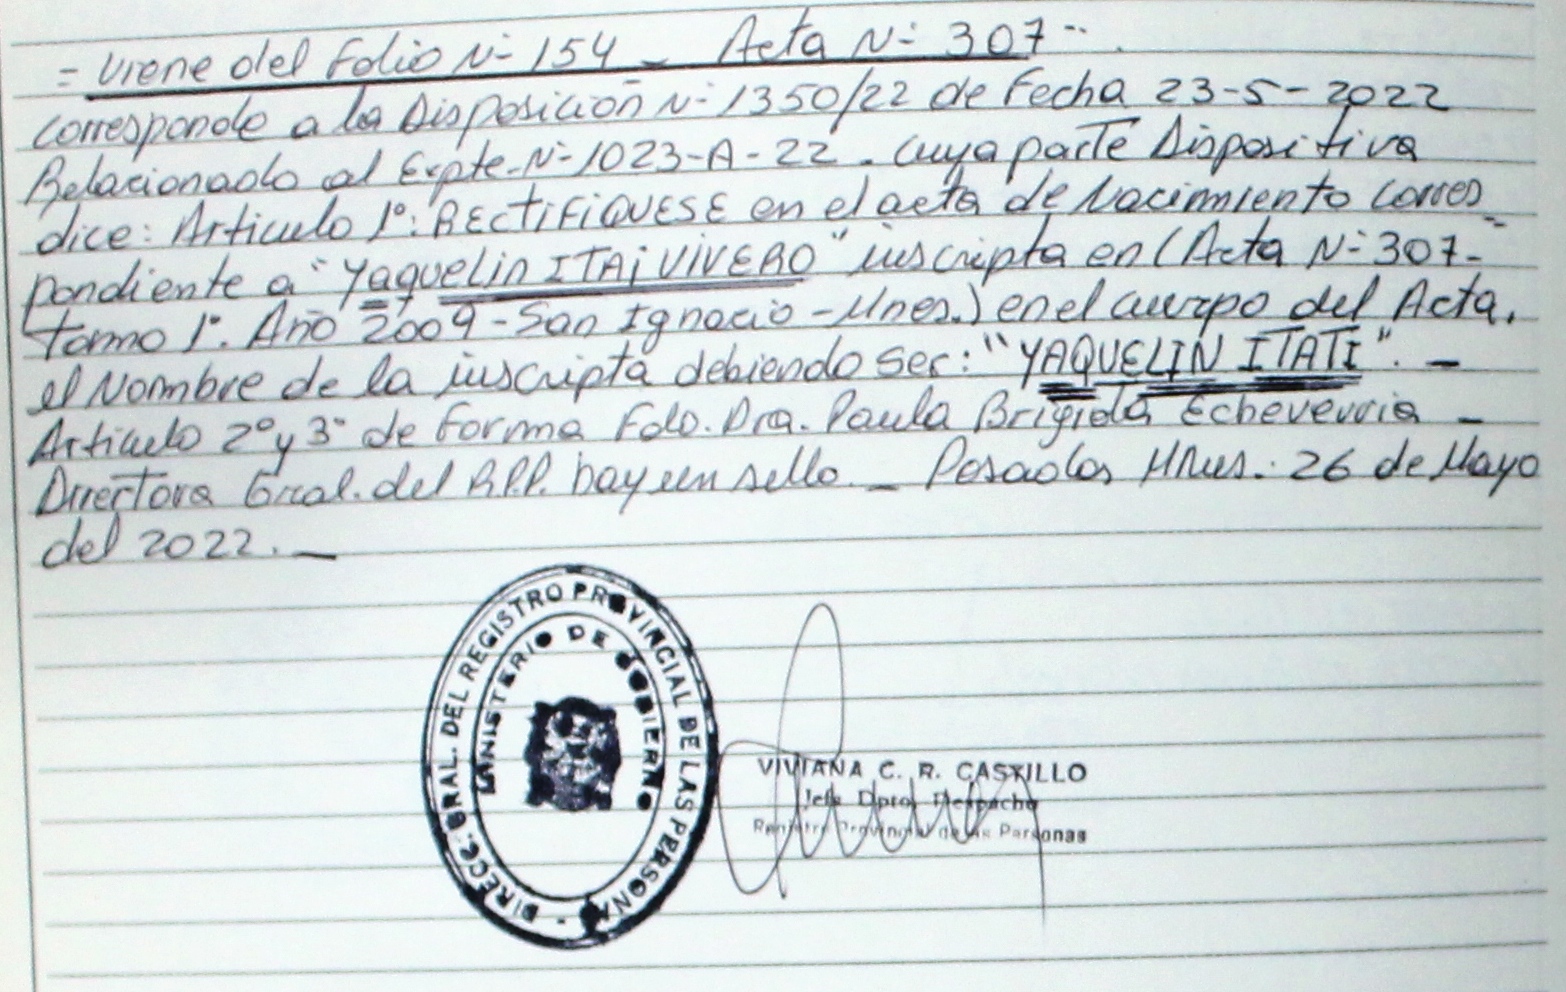 = Viene del Folio N- 154 - Acta N- 307-.
Corresponde a la Disposición N- 1350/22 de Fecha 23-5-2022
Relacionado al Expte. N- 1023-A-22. Cuya parte Dispositiva
dice: Articulo 1°: RECTIFIQUESE en el acta de Nacimiento corres
pondiente a "Yaquelin ITAi VIVERO" inscripta en (Acta N- 307-
Tomo 1°. Año 2009 - San Ignacio - Mnes.) en el cuerpo del Acta.
el Nombre de la inscripta debiendo ser: "YAQUELIN ITATI". -
Articulo 2° y 3° de forma Fdo. Dra. Paula Brigida Echeverria -
Directora Gral. del R.P.P. hay un sello. - Posadas Mnes.: 26 de Mayo
del 2022. -
DIRECC. GRAL. DEL REGISTRO PROVINCIAL DE LAS PERSONAS -
MINISTERIO DE GOBIERNO
VIVIANA C. R. CASTILLO
Jefe Dpto. Despacho
Registro Provincial de las Personas